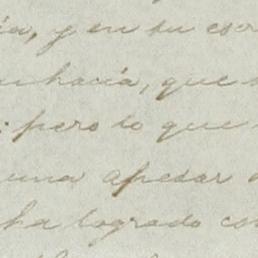 ía, y en tu escr
hacía, que
: pero lo que
una apedar
ha logrado co